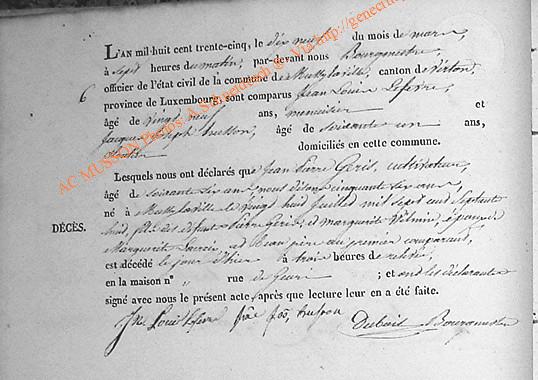 L'AN mil-huit cent trente-cinq, le dix neuf du mois de mars,
à sept heures du matin, par-devant nous Bourgmestre,
officier de l'état civil de la commune de Mussy la ville, canton de Virton,
6
province de Luxembourg, sont comparus Jean Louis Lefevre,
âgé de vingt neuf ans, menuisier et
Jacques Joseph husson, âgé de soixante un ans,
domiciliés en cette commune.
Lesquels nous ont déclarés que Jean Pierre Goris, cultivateur,
âgé de soixante six ans nous disons cinquante six ans,
né à Mussy la ville le vingt huit juillet mil sept cent septante
DÉCÈS.
huit, fils des défunts Pierre Goris, et marguerite Wilmin, époux de
Marguerite, et beau père du premier comparant,
est décédé le jour d'hier à trois heures de relevée,
en la maison n° " rue de ; et ont les déclarants
signé avec nous le présent acte, après que lecture leur en a été faite.
Jn Louis Lefevre husson Dubail Bourgmestre
AC MUSSON Photos: A.S. Via http://genecritt